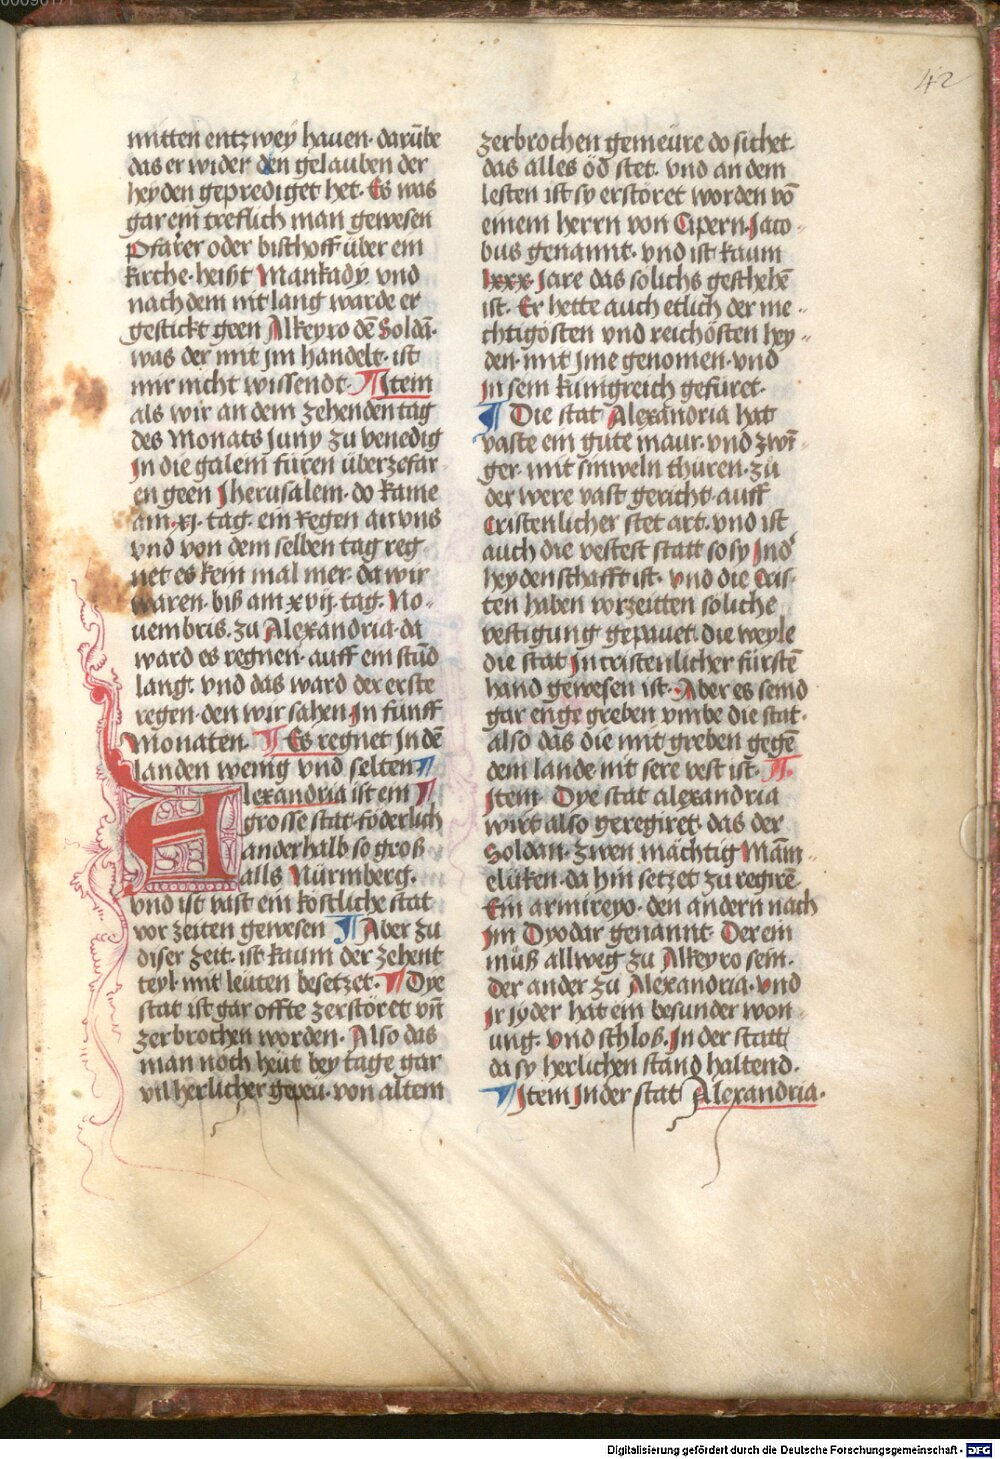 42
mitten entzwey hauen· darūbe
das er wider den gelauben der
heyden geprediget het· Es was
gar ein treflich man gewesen
Pfarer oder bischoff über ein
kirche· heist Mankady vnd
nach dem nit lang warde er
gestickt geen Alkeyro dē Soldā·
was der mit jm handelt· ist
mir nicht wissendt· ¶ Item
als wir an dem zehenden tag
des Monats Juny zu venedig
In die galein fůren überzefar
en geen Jherusalem· do kame
am·xj· tag· ein regen an vns
vnd von dem selben tag reg-
net es kein mal mer· da wir
waren· biß am xvij· tag· No-
uembris· zu Alexandria· da
ward es regnen· auff ein stūd
lang· vnd das ward der erste
regen· den wir sahen In funff
Monaten· ¶ Es regnet In dē
landen wenig vnd selten ¶
Alexandria ist ein ¶
grosse stat· föderlich
anderhalb so groß
alls Nürmberg·
vnd ist vast ein köstliche stat
vor zeiten gewesen ¶ Aber zu
diser zeit· ist kaum der zehent
teyl· mit leüten besetzet· ¶ Dye
stat ist gar offte zerstöret vn̄
zerbrochen worden· Also das
man noch heüt bey tage gar
vil herlicher gepeu· von altem
zerbrochen gemeüre do sichet·
das alles öd stet· vnd an dem
lesten ist sy erstöret worden vō
einem herrn von Cipern· Jaco-
bus genannt· vnd ist kaum
lxxx· Jare das solichs geschehē
ist· Er hette auch etlich der me-
chtigösten vnd reichösten hey-
den· mit jme genomen· vnd
In sein kunigreich gefüret·
¶ Die stat Alexandria hat
vaste ein gute maur· vnd zwī-
ger· mit sinweln thüren· zu
der were vast gericht· auff
Cristenlicher stet art· vnd ist
auch die vestest statt so sy Ind
heydenschafft ist· vnd die Cris-
ten haben vorzeitten soliche
vestigung gepauet· die weyle
die stat In cristenlicher fürstē
hand gewesen ist· Aber es seind
gar enge greben vmbe die stat·
also das die mit greben gegē
dem lande nit sere vest ist· ¶·
Item· Dye stat alexandria
wirt also geregiret· das der
Soldan· zwen mächtig Mām-
elüken· da hin setzet zu regirē
Ein armireyo· den andern nach
Im Dyodar genannt· Der ein
můß allweg zu Alkeyro sein·
Der ander zu Alexandria· vnd
Ir iyder hat ein besunder won-
ung· vnd schloß· In der statt
da sy herlichen stand haltend·
¶ Item In der stat Alexandria·
Digitalisierung gefördert durch die Deutsche Forschungsgemeinschaft - DFG